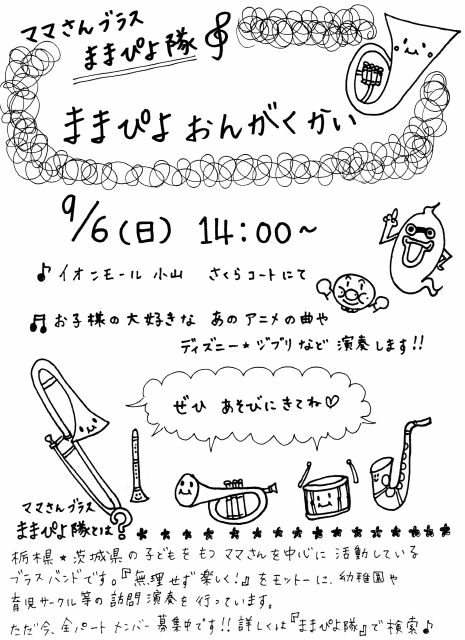 ママさんブラス
ままぴよ隊
ままぴよ おんがくかい
9/6(日) 14:00~
♪イオンモール 小山 さくらコートにて
♫お子様の大好きな あのアニメの曲や
ディズニー★ジブリなど 演奏します!!
ぜひ あそびにきてね♡
ママさんブラス
ままぴよ隊とは?
栃木県★茨城県の子どもをもつママさんを中心に 活動している
ブラスバンドです。『無理せず楽しく!』をモットーに、幼稚園や
育児サークル等の訪問演奏を行っています。
ただ今、全パートメンバー募集中です!!詳しくは『ままぴよ隊』で検索♪